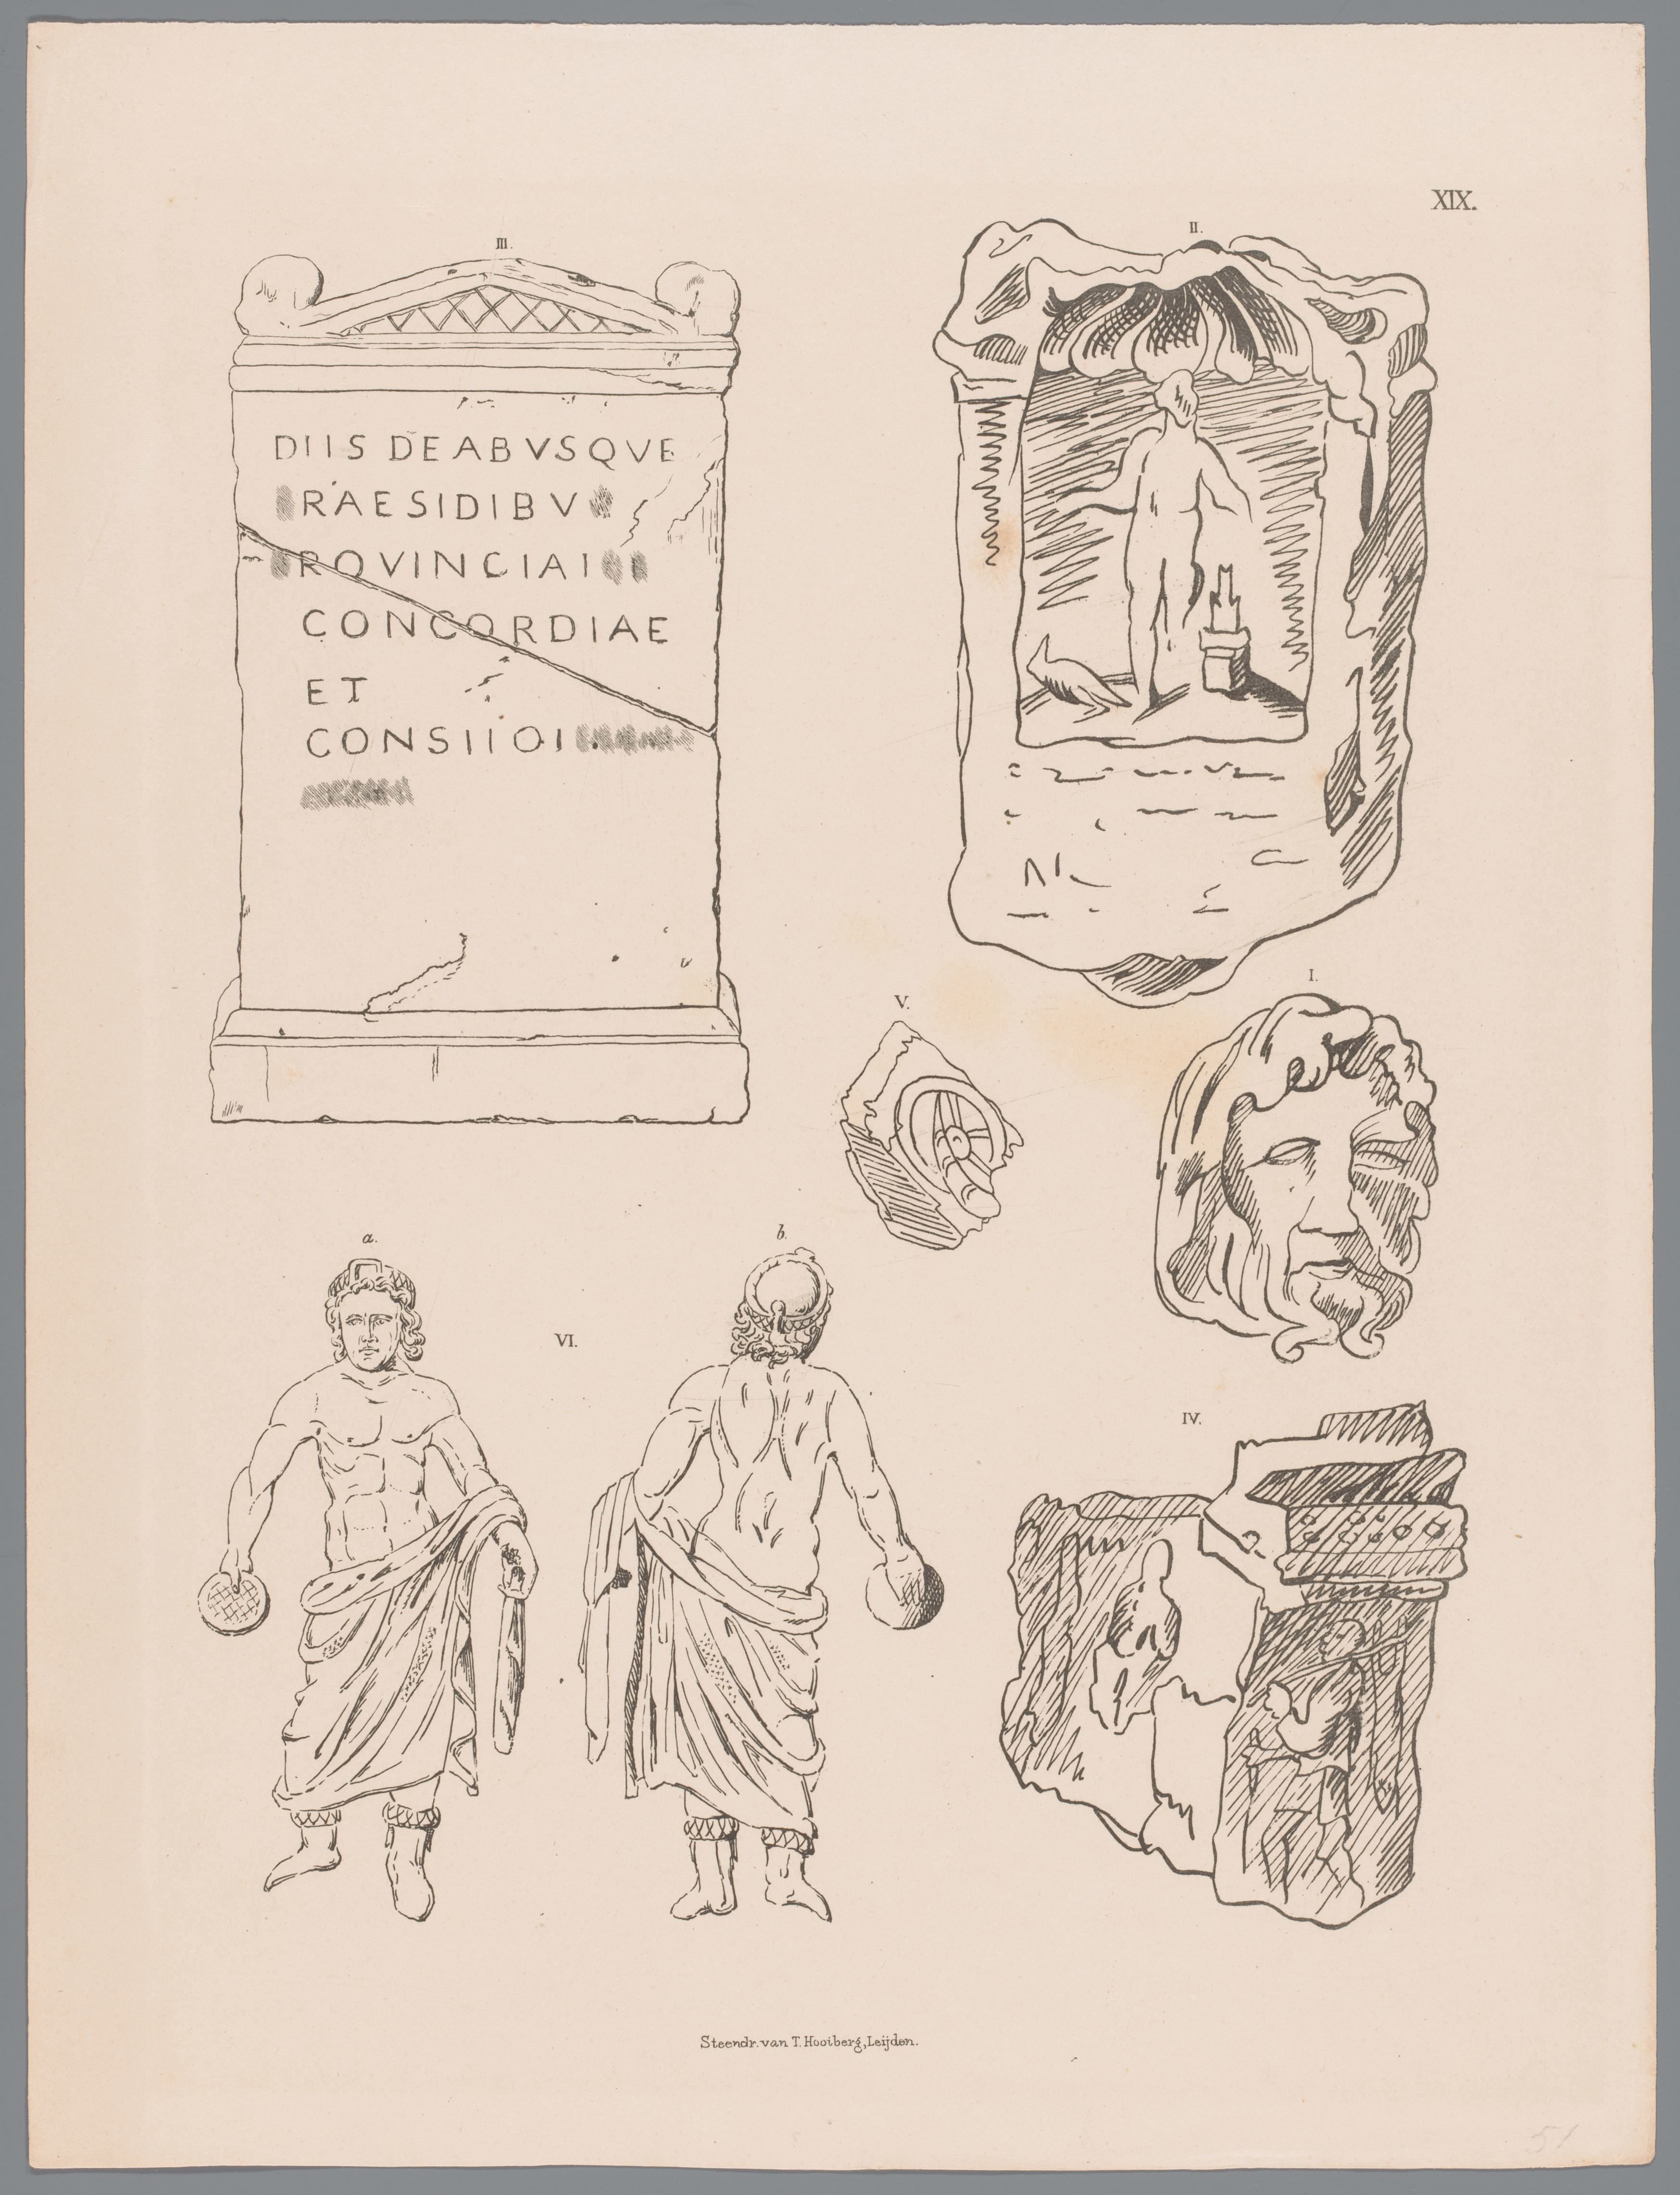 XIX.
III.
II.
DIIS DEABVSQVE
RAESIDIBV
ROVINCIAI
CONCORDIAE
ET
CONSIIOI
I.
V.
a.
b.
VI.
IV.
Steendr. van T. Hooiberg, Leijden.
51